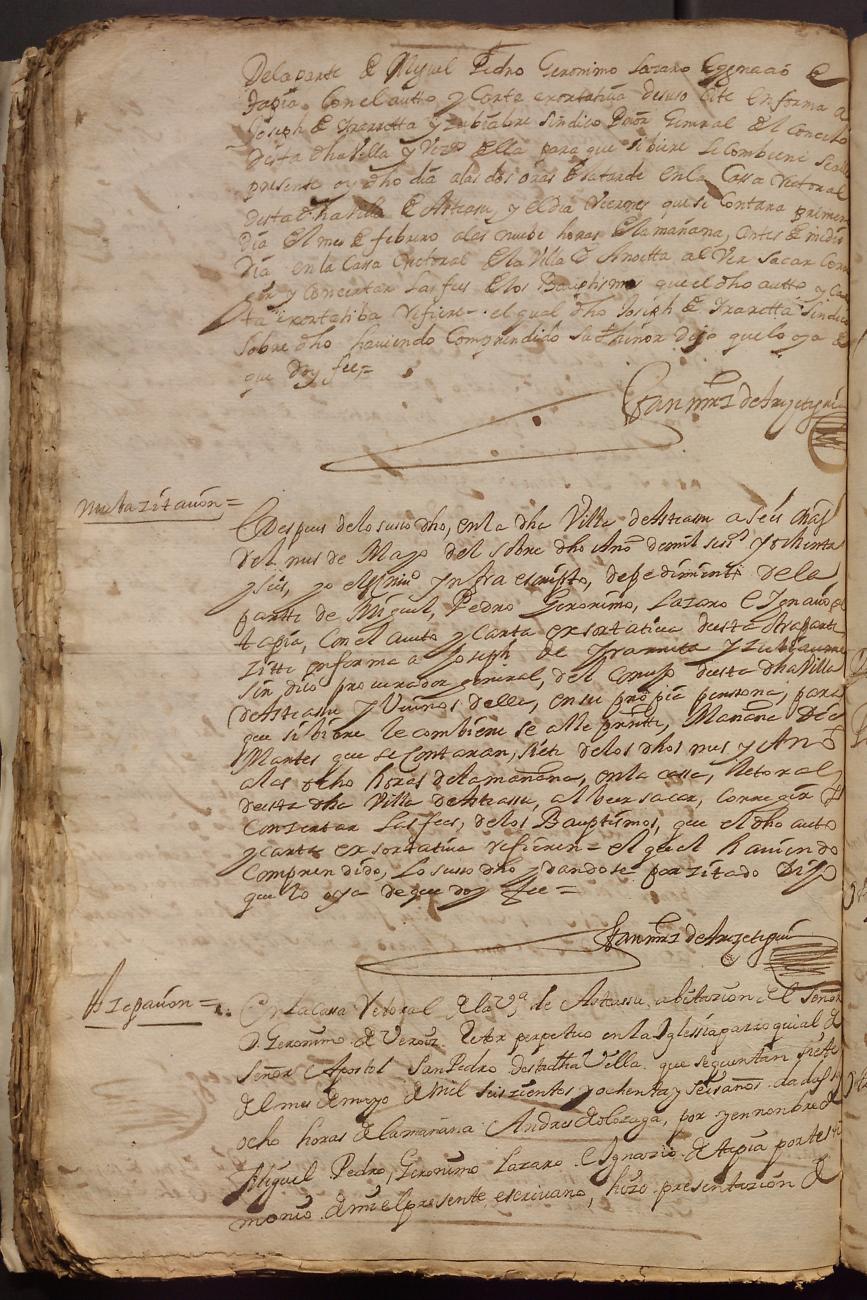 De la parte de Miguel Pedro Geronimo Lazaro e ygnacio de
Tapia con el autto y Carta exortatiba de suso Cite en forma a
Joseph de Yrarretta y zubiaurre Sindico Procor General del Concejo
desta dha Villa y Vezo della para que si biere le combiene se alle
presente oy dho dia a las dos oras de la tarde en la Cassa Rectoral
desta dha Villa de Asteasu, y el dia Viernes que se Contara primero
dia del mes de febrero a las nuebe horas de la mañana, Antes de medio
dia en la Cassa Rectoral de la Villa de Anoetta al Ver sacar Corre
gir y Concertar las fees de los Bauptismos que el dho autto y Car
ta exortatiba refiere = el qual dho Joseph de Yrarretta Sindico
Sobre dho haviendo Comprendido su thenor dijo que lo oya de
que Doy fee =
Fran mrz de Aryzteguiа
nueba Zitaçion =
Despues de lo susso dho, en la dha Villa de Asteasu a seis dias
del mes de Mayo del sobre dho Año de mil seiso y ochenta
y seis, yo el Escriuo ynfra escripto, de pedimiento de la
partte de Miguel, Pedro Geronimo, Lazaro e Ygnaçio de
tapia, con el auto y carta exsortatiua de esta otra parte
Zitte en forma a Joseph de Yrarreta y Zubiaurre
sindico procurador general, del Consejo de esta dha Villa
de Asteasu y Veçinos della, en su propia persona, para
que si biere le combiene se alle presente, Mañana Dia
Martes que se Contaran, siete de los dhos mes y Año
a las ocho horas de la mañana, en la cassa, Retoral
de esta dha Villa de Asteasu, al beer sacar, corregir y
Conzertar las fees, de los Bauptismos, que el dho auto
y carta exsortatiua refieren = el qual haviendo
Comprendido, lo susso dho y dandose por zitado Dijo
que lo oya de que doy fee =
Fran mrz de Aryztegui
En la Cassa Retoral de la Va de Asteassu abitazion del Señor
D. Geronimo de Veroiz Retor perpetuo en la Iglessia parroquial del
Señor Apostol San Pedro desta dha Villa que se quentan siete
del mes de mayo de mil seiszientos y ochenta y seis años dadas las
ocho horas de la mañana Andres de olozaga, por y en nombre de
Miguel Pedro, Geronimo Lazaro e Ignazio de tapia por testi
monio de mi el presente escriuano, hizo presentazion de